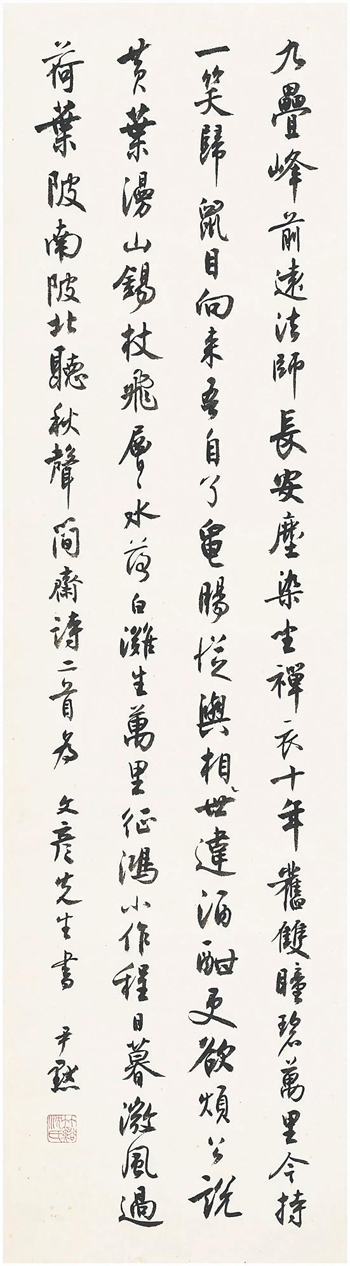 九疊峰前遠法師長安塵染坐禪衣十年舊雙瞳碧萬里今持
一笑歸鼠目向來吾自了龜腸從與相世違酒酣更欲煩公說
黃葉漫山錫杖飛層々水落白灘生萬里征鴻小作程日暮微風過
荷葉陂南陂北聽秋聲簡齋詩二首為 文彥先生書 尹默